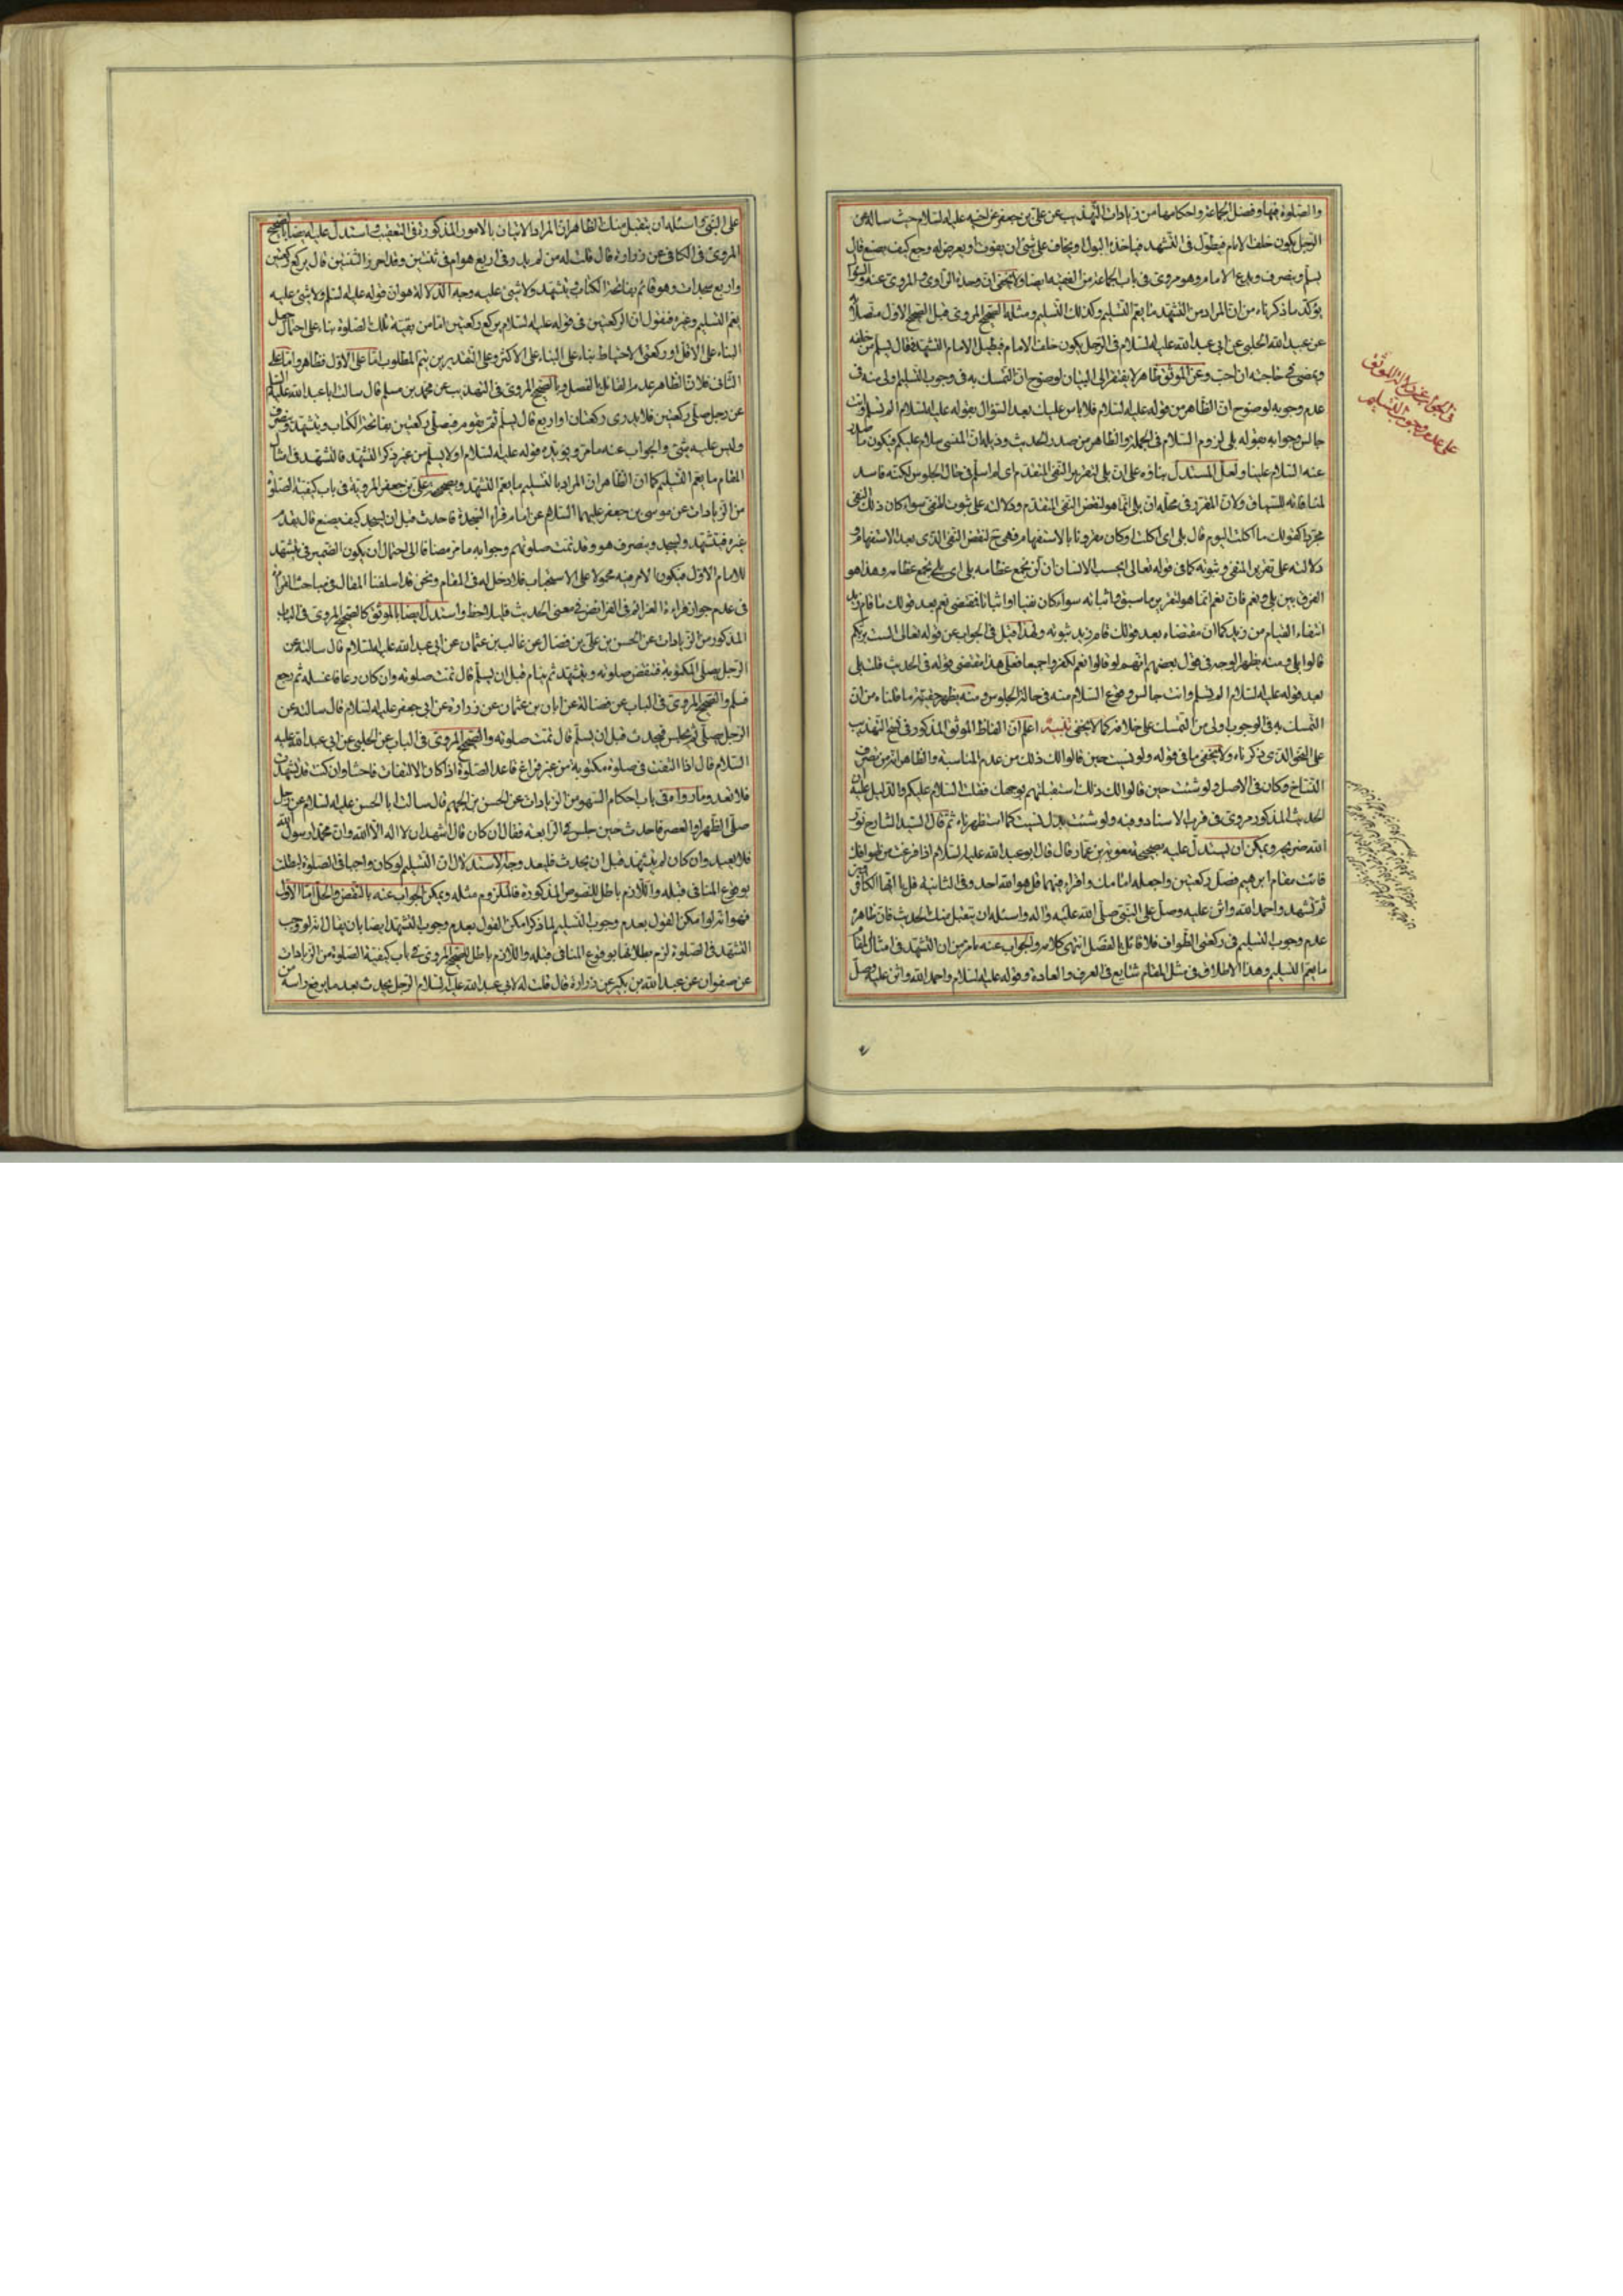 والصلوة فيها وفضل الجماعة واحكامها من زيادات التهذيب عن علي بن جعفر عن اخيه عليه السلام حيث ساله عن
الرجل يكون خلف الامام فيطول في التشهد فياخذه البول او يخاف على شئ ان يفوت او يعرض له وجع كيف يصنع قال
يسلم وينصرف ويدع الامام وهو مروي في باب الجماعة من الفقيه ايضا ولا يخفى ان وحدة الراوي والمروي عنه والسؤال
يؤكد ما ذكرناه من ان المراد من التشهد ما يعم التسليم وكذلك التسليم ومثله الصحيح المروي قبل الصحيح الاول متصلا به
عن عبيد الله الحلبي عن ابي عبد الله عليه السلام في الرجل يكون خلف الامام فيطيل الامام التشهد فقال يسلم من خلفه
ويمضي في حاجته ان احب وعن الموثق ظاهر لا يفتقر الى البيان لوضوح ان التمسك به في وجوب التسليم اولى منه في
عدم وجوبه لوضوح ان الظاهر من قوله عليه السلام فلا باس عليك بعد السؤال بقوله عليه السلام الم تسلم وانت
جالس وجوابه بقوله بلى لزوم السلام في الجملة والظاهر من صدر الحديث وذيله ان المنسي سلام عليكم فيكون ما صدر
عنه السلام علينا ولعل المستدل بناؤه على ان بلى لتقرير النفي المتقدم اي لم اسلم في حال الجلوس لكنه فاسد
لمنافاته للسياق ولان المقرر في محله ان بلى انما هو لنقض النفي المتقدم ودلالته على ثبوت المنفي سواء كان ذلك النفي
مجردا كقولك ما اكلت اليوم قال بلى اي اكلت او كان مقرونا بالاستفهام فهي ح لنقض النفي الذي بعد الاستفهام و
دلالته على تقرير المنفي وثبوته كما في قوله تعالى ايحسب الانسان ان لن نجمع عظامه بلى اي بلى نجمع عظامه وهذا هو
الفرق بين بلى ونعم فان نعم انما هو لتقرير ما سبق واثباته سواء كان نفيا او اثباتا فمقتضى نعم بعد قولك ما قام زيد
انتفاء القيام من زيد كما ان مقتضاه بعد قولك قام زيد ثبوته ولهذا قيل في الجواب عن قوله تعالى الست بربكم
قالوا بلى ومنه يظهر الوجه في قول بعضهم انهم لو قالوا نعم لكفروا جميعا فعلى هذا مقتضى قوله في الحديث قلت بلى
بعد قوله عليه السلام الم تسلم وانت جالس وقوع السلام منه في حالة الجلوس ومنه يظهر حقيقة ما قلناه من ان
التمسك به في الوجوب اولى من التمسك على خلافه كما لا يخفى تنبيه اعلم ان الفاظ الموثق المذكور في نسخ التهذيب
على النحو الذي ذكرناه ولا يخفى ما في قوله ولو نسيت حين قالوا لك ذلك من عدم المناسبة والظاهر انه من تصرف
النساخ وكان في الاصل ولو شئت حين قالوا لك ذلك استقبلتهم بوجهك فقلت السلام عليكم والدليل عليه ان
الحديث المذكور مروي في قرب الاسناد وفيه ولو شئت بدل نسيت كما استظهرناه ثم قال السيد الشارح نور
الله ضريحه ويمكن ان يستدل عليه بصحيحة معوية بن عمار قال قال ابو عبد الله عليه السلام اذا فرغت من طوافك
فائت مقام ابرهيم فصل ركعتين واجعله اماما واقراء فيهما قل هو الله احد وفي الثانية قل يا ايها الكافرون
ثم تشهد واحمد الله واثن عليه وصل على النبي صلى الله عليه واله واسئله ان يتقبل منك الحديث فان ظاهره
عدم وجوب التسليم في ركعتي الطواف فلا قائل بالفصل انتهى كلامه والجواب عنه ما مر من ان التشهد في امثال المقام
ما يعم التسليم وهذا الاطلاق في مثل المقام شايع في العرف والعادة وقوله عليه السلام واحمد الله واثن عليه وصل
في الجواب عن دلالة الموثق
على عدم وجوب التسليم
على النبي واسئله ان يتقبل منك الظاهر ان المراد الاتيان بالامور المذكورة في التعقيب واستدل عليه ايضا بالصحيح
المروي في الكافي عن زرارة قال قلت له من لم يدر في اربع هو ام في ثنتين وقد احرز الثنتين قال يركع ركعتين
واربع سجدات وهو قائم بفاتحة الكتاب ويتشهد ولا شئ عليه وجه الدلالة هو ان قوله عليه السلام ولا شئ عليه
يعم التسليم وغيره فنقول ان الركعتين في قوله عليه السلام يركع ركعتين اما من بقية تلك الصلوة بناء على احتمال حمل
البناء على الاقل او ركعتي الاحتياط بناء على البناء على الاكثر وعلى التقديرين يتم المطلوب اما على الاول فظاهر واما على
الثاني فلان الظاهر عدم القائل بالفصل وبالصحيح المروي في التهذيب عن محمد بن مسلم قال سالت ابا عبد الله عليه السلام
عن رجل صلى ركعتين فلا يدري ركعتان او اربع قال يسلم ثم يقوم فيصلي ركعتين بفاتحة الكتاب ويتشهد وينصرف
وليس عليه شئ والجواب عنه ما مر ويؤيده قوله عليه السلام اولا يسلم من غير ذكر التشهد فالتشهد في امثال
المقام ما يعم التسليم كما ان الظاهر ان المراد بالتسليم ما يعم التشهد وبصحيحة علي بن جعفر المروية في باب كيفية الصلوة
من الزيادات عن موسى بن جعفر عليهما السلام عن امام قراء السجدة فاحدث قبل ان يسجد كيف يصنع قال يقدم
غيره فيتشهد ويسجد وينصرف هو وقد تمت صلوتهم وجوابه ما مر مضافا الى احتمال ان يكون الضمير في يتشهد
للامام الاول فيكون الامر فيه محمولا على الاستحباب فلا دخل له في المقام ونحن قد اسلفنا المقال في مباحث القراءة
في عدم جواز قراءة العزائم في الفرائض في معنى الحديث فليلاحظ واستدل ايضا بالموثق كالصحيح المروي في الباب
المذكور من الزيادات عن الحسن بن علي بن فضال عن غالب بن عثمان عن ابي عبد الله عليه السلام قال سالته عن
الرجل يصلي المكتوبة فتنقضي صلوته ويتشهد ثم ينام قبل ان يسلم قال تمت صلوته وان كان رعافا غسله ثم رجع
فسلم والصحيح المروي في الباب عن فضالة عن ابان بن عثمان عن زرارة عن ابي جعفر عليه السلام قال سالته عن
الرجل يصلي ثم يجلس فيحدث قبل ان يسلم قال تمت صلوته والصحيح المروي في الباب عن الحلبي عن ابي عبد الله عليه
السلام قال اذا التفت في صلوة مكتوبة من غير فراغ فاعد الصلوة اذا كان الالتفات فاحشا وان كنت قد تشهدت
فلا تعد وما رواه في باب احكام السهو من الزيادات عن الحسن بن الجهم قال سالت ابا الحسن عليه السلام عن رجل
صلى الظهر او العصر فاحدث حين جلس في الرابعة فقال ان كان قال اشهد ان لا اله الا الله وان محمدا رسول الله
فلا يعيد وان كان لم يتشهد قبل ان يحدث فليعد وجه الاستدلال ان التسليم لو كان واجبا في الصلوة لبطلت
بوقوع المنافي قبله واللازم باطل للنصوص المذكورة فالملزوم مثله ويمكن الجواب عنه بالنقض والحل اما الاول
فهو انه لو امكن القول بعدم وجوب التسليم لما ذكر امكن القول بعدم وجوب التشهد ايضا بان يقال انه لو وجب
التشهد في الصلوة لزم بطلانها بوقوع المنافي قبله واللازم باطل للصحيح المروي في باب كيفية الصلوة من الزيادات
عن صفوان عن عبد الله بن بكير عن زرارة قال قلت لابي عبد الله عليه السلام الرجل يحدث بعد ما يرفع راسه من